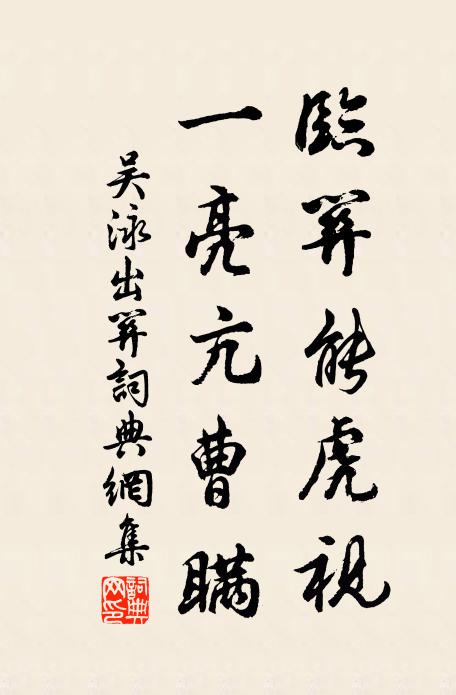 臨關能虎視
一亮亢曹瞞
吴泳出關詞典網集
詞典网印